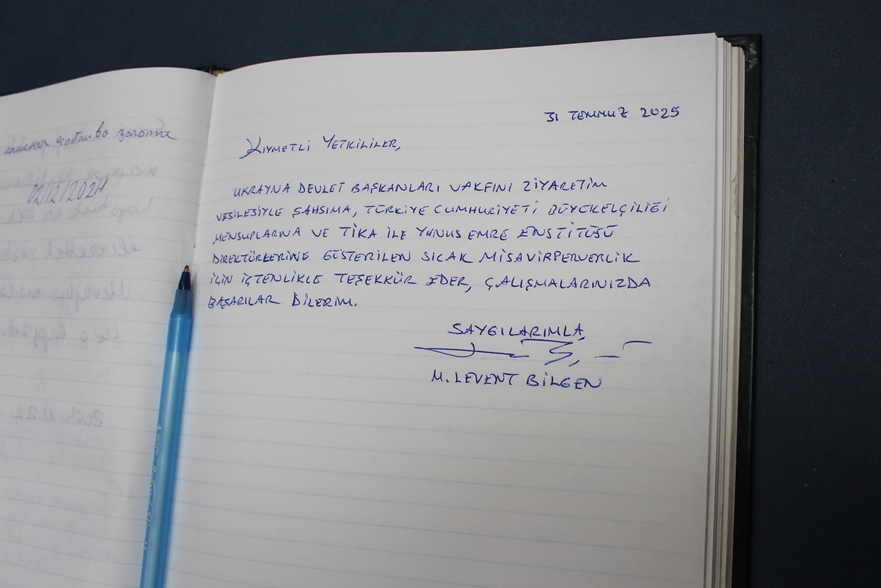 02/12/2024
31 TEMMUZ 2025
KIYMETLİ YETKİLİLER,
UKRAYNA DEVLET BAŞKANLARI VAKFINI ZİYARETİM
VESİLESİYLE ŞAHSIMA, TÜRKİYE CUMHURİYETİ BÜYÜKELÇİLİĞİ
MENSUPLARINA VE TİKA İLE YUNUS EMRE ENSTİTÜSÜ
DİREKTÖRLERİNE GÖSTERİLEN SICAK MİSAVİRPERVERLİK
İÇİN İÇTENLİKLE TEŞEKKÜR EDER, ÇALIŞMALARINIZDA
BAŞARILAR DİLERİM.
SAYGILARIMLA,
M. LEVENT BİLGEN